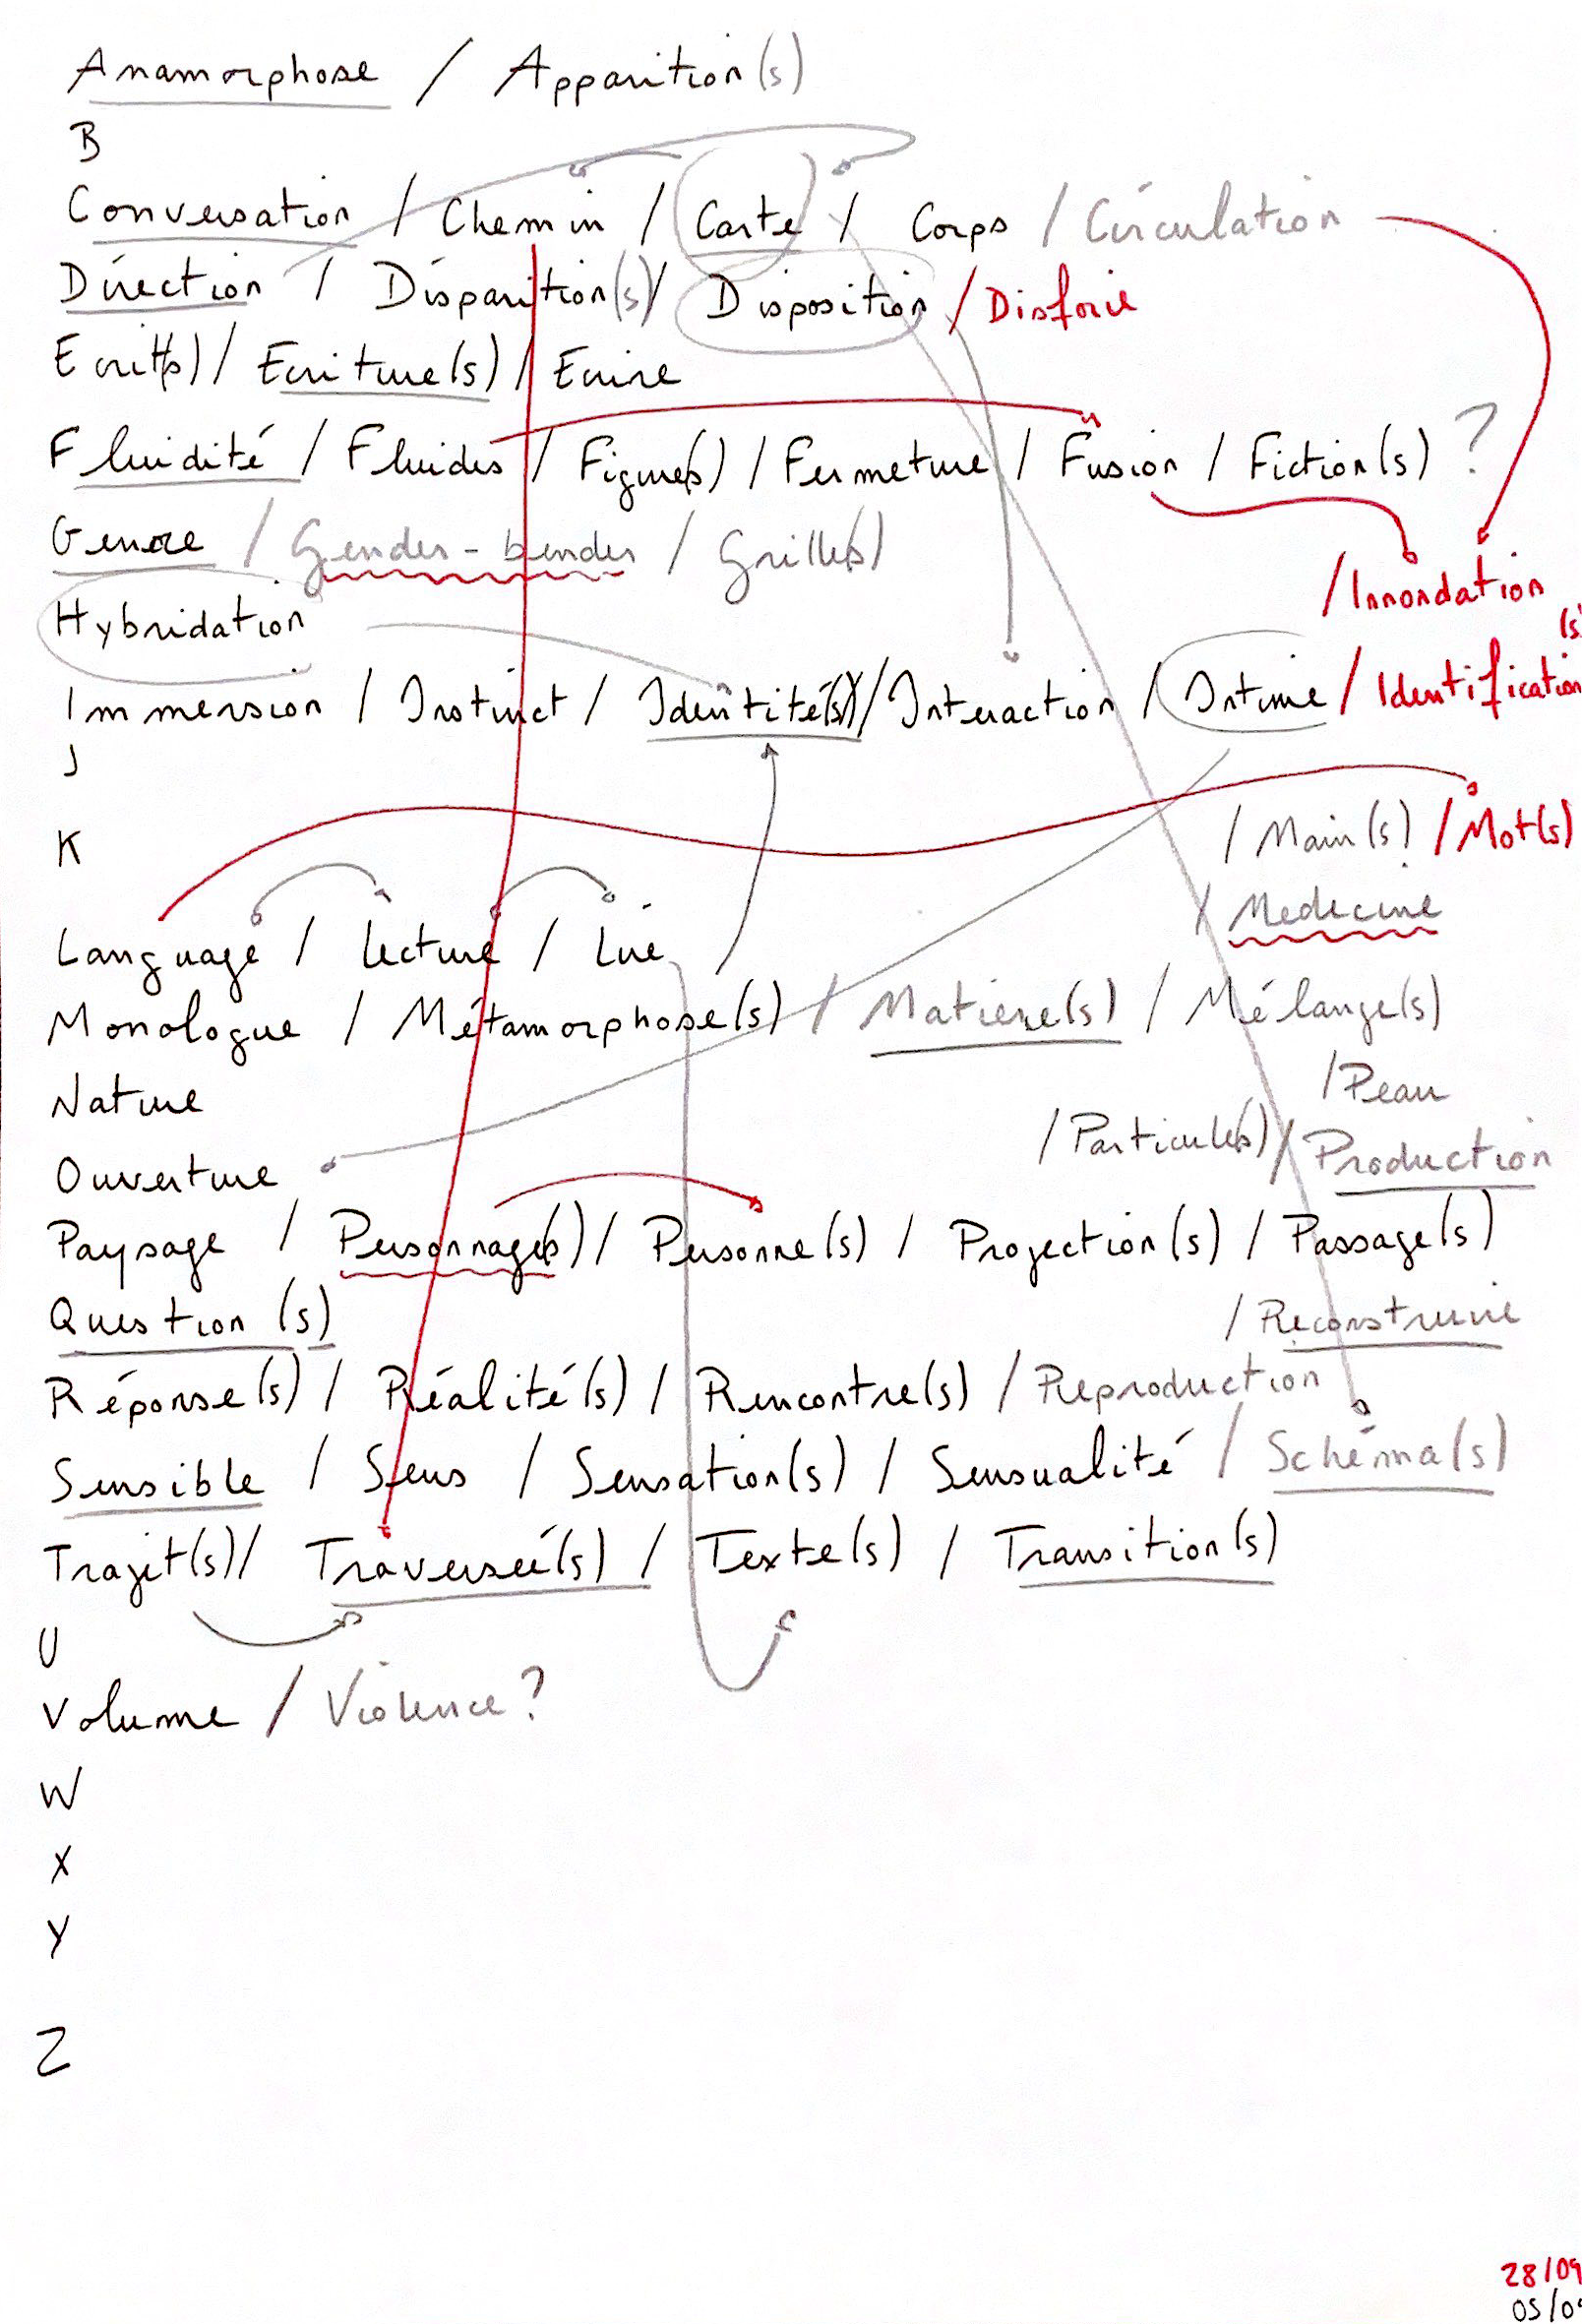 Anamorphose / Apparition(s)
B
Conversation / Chemin / Carte / Corps / Circulation
Direction / Disparition(s) / Disposition / Disforie
Ecrit(s) / Ecriture(s) / Ecrire
Fluidité / Fluides / Figure(s) / Fermeture / Fusion / Fiction(s) ?
Genre / Gender-bender / Grille(s)
/ Innondation
Hybridation
(s)
Immersion / Instinct / Identité(s) / Interaction / Intime / Identification
J
/ Main(s) / Mot(s)
K
/ Medecine
Language / Lecture / Lire
Monologue / Métamorphose(s) / Matière(s) / Mélange(s)
/ Peau
Nature
/ Particule(s) / Production
Ouverture
Paysage / Personnage(s) / Personne(s) / Projection(s) / Passage(s)
Question(s)
/ Reconstruire
Réponse(s) / Réalité(s) / Rencontre(s) / Reproduction
Sensible / Sens / Sensation(s) / Sensualité / Schéma(s)
Trajet(s) / Traversée(s) / Texte(s) / Transition(s)
U
Volume / Violence ?
W
X
Y
Z
28/09
05/0